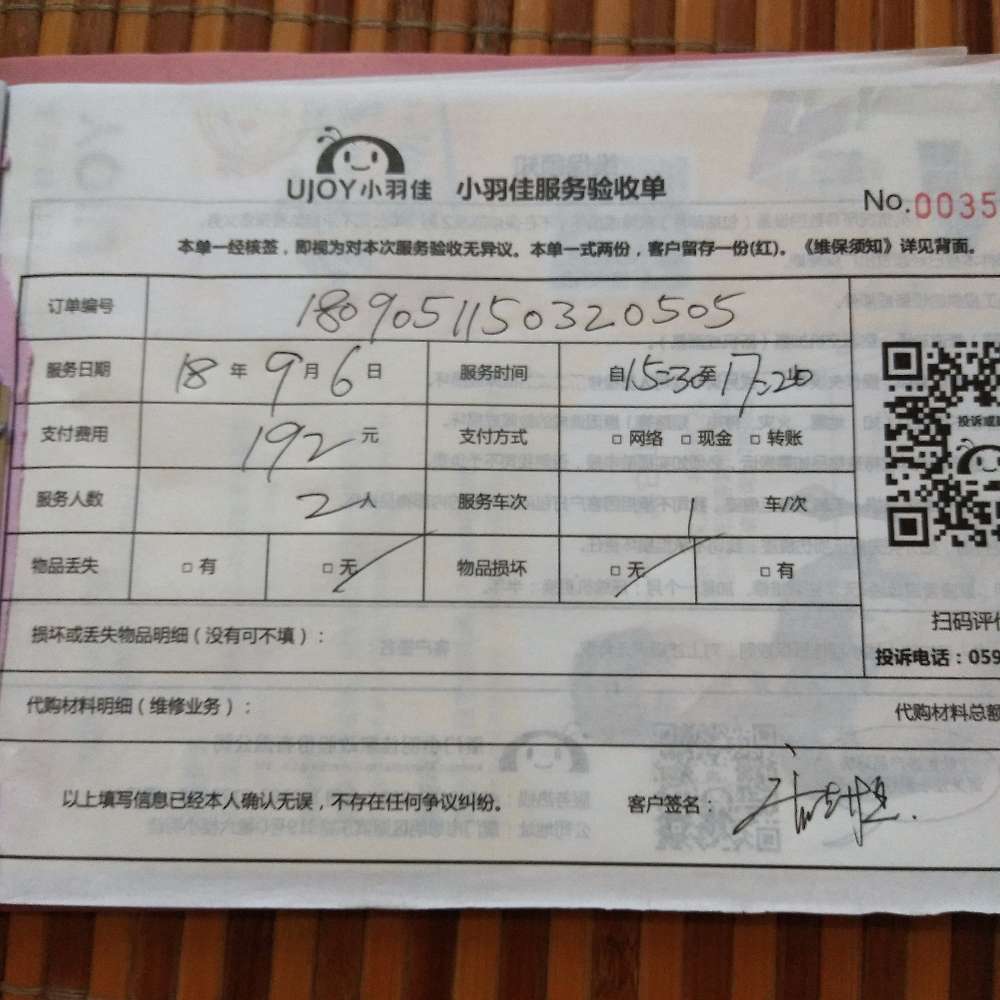 UJOY小羽佳 小羽佳服务验收单
No.0035
本单一经核签，即视为对本次服务验收无异议。本单一式两份，客户留存一份(红)。《维保须知》详见背面。
订单编号 1809051150320505
服务日期 18 年 9 月 6 日 服务时间 自15:30至17:20止
支付费用 192 元 支付方式 □ 网络 □ 现金 □ 转账
服务人数 2 人 服务车次 1 车/次
物品丢失 □ 有 □ 无 物品损坏 □ 无 □ 有
投诉或
扫码评价
投诉电话：059
损坏或丢失物品明细（没有可不填）：
代购材料明细（维修业务）： 代购材料总额
以上填写信息已经本人确认无误，不存在任何争议纠纷。 客户签名：